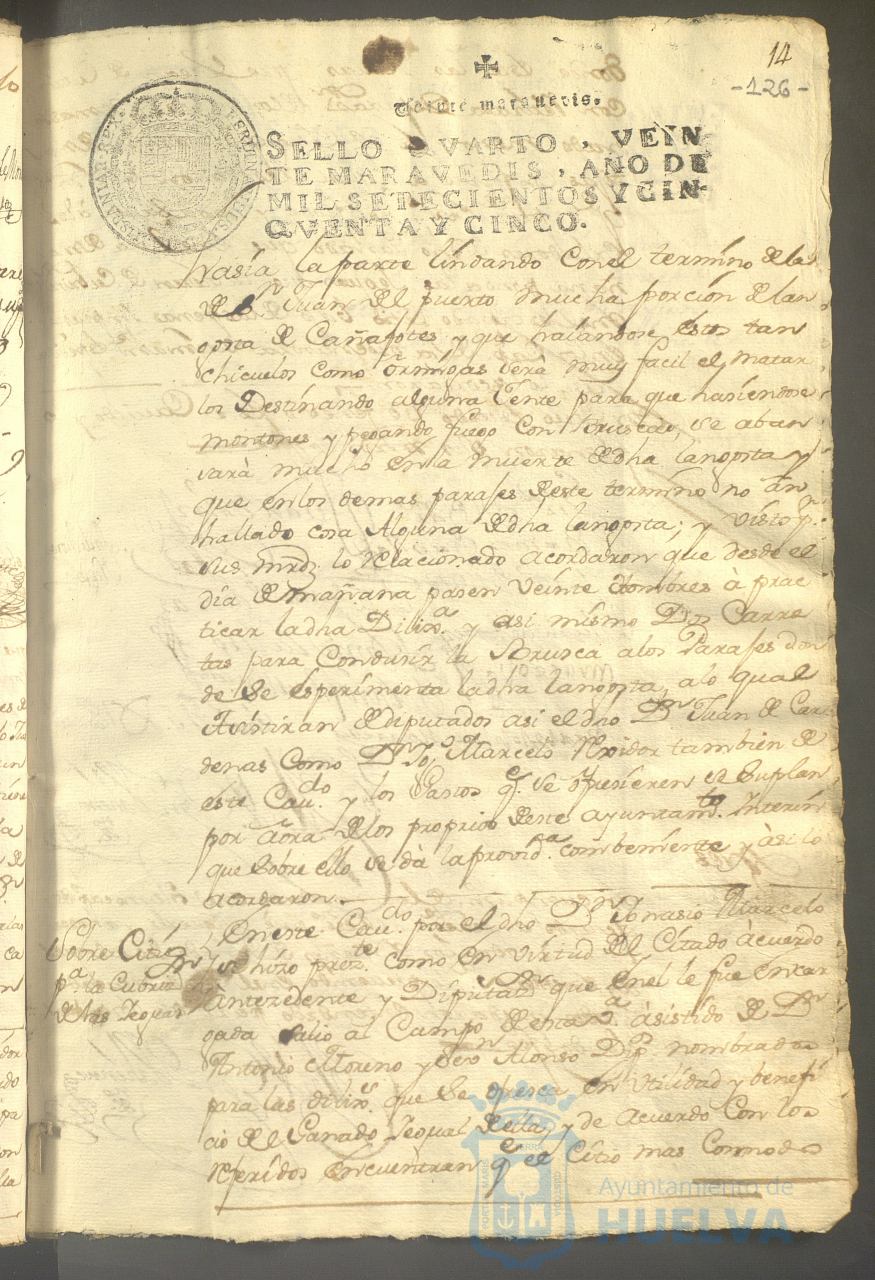 14
-126-
Veinte marauedis.
SELLO QVARTO, VEIN
TE MARAVEDIS, AÑO DE
MIL SETECIENTOS Y CIN-
QVENTA Y CINCO.
hasia la parte lindando con el termino de la
de Sn. Juan del puerto mucha porcion de lan
gosta de Cañafotes y que halandose estos tan
chicuelos como ormigas será muy facil el matar
los Destinando alguna Gente para que hasiendose
montones y pegando fuego con se aban
zará mucho en la muerte de dha langosta y
que en los demas parajes de este termino no an
hallado cosa Alguna de dha langosta; y visto pr.
sus mrds. lo Relacionado acordaron que desde el
dia de mañana pasen Veinte Hombres à prac
ticar la dha Dilixa. y asi mismo Dos Carre
tas para Condusir la Brusca a los Parajes don
de se esperimenta la dha langosta, a lo qual
Asistiran de diputados asi el dho Dn. Juan de Car
denas como Dn. Marcelo tambien de
este Caudo. y los Gastos qe. se ofresieren se Suplan
por aora de los proprios de este ayuntamto. Interin
que sobre ello se dà la provida. combeniente y àsi lo
acordaron.
Sobre Citio
pa. la Cubrision
de las Yeguas
En este Caudo. por el dho Dn. Ignasio Marcelo
se hizo preste. como en virtud del Citado àcuerdo
antezedente y Diputasn. que en el le fue encar
gada salio al Campo de esta Va. àsistido de Dn.
Antonio Moreno y Alonso nombrados
para las dilixs. que se ofresca en utilidad y benefi
cio del Ganado Yegual de ella, y de acuerdo con los
Referidos encuentran qe. el Citio mas Commodo
Ayuntamiento de
HUELVA